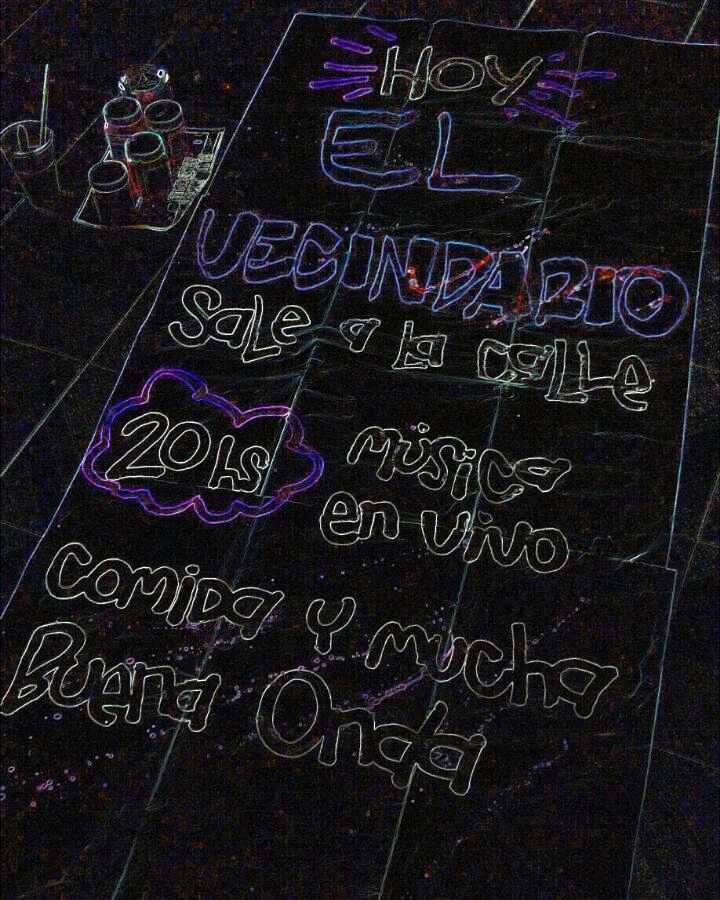 HOY
EL
VECINDARIO
Sale a la calle
20hs
música
en vivo
comida y mucha
Buena Onda